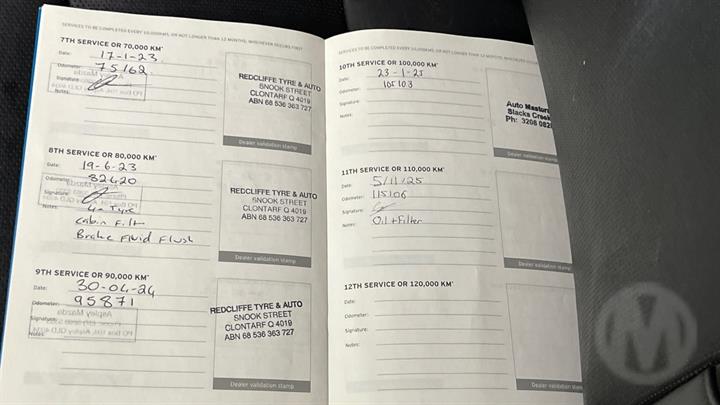 SERVICES TO BE COMPLETED EVERY 10,000KMS, OR NOT LONGER THAN 12 MONTHS, WHICHEVER OCCURS FIRST
7TH SERVICE OR 70,000 KM*
Date: 17-1-23
Odometer: 75162
Signature:
Notes:
REDCLIFFE TYRE & AUTO
SNOOK STREET
CLONTARF Q 4019
ABN 68 536 363 727
Dealer validation stamp
8TH SERVICE OR 80,000 KM*
Date: 19-6-23
Odometer: 82420
Signature:
Notes: Tyre
Cabin Filt
Brake Fluid Flush
REDCLIFFE TYRE & AUTO
SNOOK STREET
CLONTARF Q 4019
ABN 68 536 363 727
Dealer validation stamp
9TH SERVICE OR 90,000 KM*
Date: 30-04-24
Odometer: 95871
Signature:
Notes:
REDCLIFFE TYRE & AUTO
SNOOK STREET
CLONTARF Q 4019
ABN 68 536 363 727
Dealer validation stamp
SERVICES TO BE COMPLETED EVERY 10,000KMS, OR NOT LONGER THAN 12 MONTHS, WHICHEVER OCCURS
10TH SERVICE OR 100,000 KM*
Date: 23-1-25
Odometer: 105103
Signature:
Notes:
Auto Masters
Slacks Creek
Ph: 3208 082
Dealer validation stamp
11TH SERVICE OR 110,000 KM*
Date: 5/11/25
Odometer: 115106
Signature:
Notes: Oil + Filter
Dealer validation stam
12TH SERVICE OR 120,000 KM*
Date:
Odometer:
Signature:
Notes:
Dealer validation stamp
M